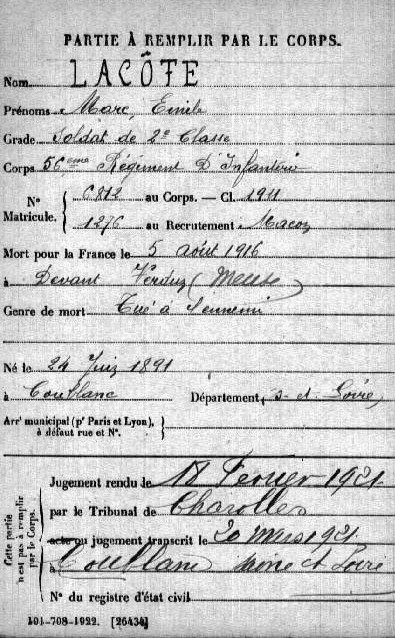 PARTIE À REMPLIR PAR LE CORPS.
Nom LACÔTE
Prénoms Marc, Emile
Grade Soldat de 2e Classe
Corps 56ème Régiment D'Infanterie
N° Matricule. { 6812 au Corps. — Cl. 1911
1276 au Recrutement Macon
Mort pour la France le 5 août 1916
à Devant Verdun (Meuse)
Genre de mort Tué à l'ennemi
Né le 24 Juin 1891
à Coublanc Département S-et-Loire
Arrt municipal (pr Paris et Lyon), à défaut rue et N°. }
Cette partie n'est pas à remplir par le Corps.
Jugement rendu le 18 Fevrier 1921
par le Tribunal de Charolles
acte ou jugement transcrit le 20 Mars 1921
à Coublanc Saone et Loire
N° du registre d'état civil
101-708-1922. [26434]